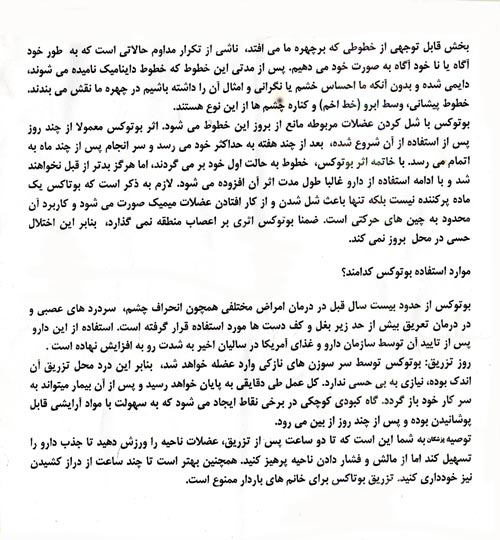 بخش قابل توجهی از خطوطی که برچهره ما می افتد، ناشی از تکرار مداوم حالاتی است که به طور خود
آگاه یا نا خود آگاه به صورت خود می دهیم. پس از مدتی این خطوط که خطوط داینامیک نامیده می شوند،
دایمی شده و بدون آنکه ما احساس خشم یا نگرانی و امثال آن را داشته باشیم در چهره ما نقش می بندند.
خطوط پیشانی، وسط ابرو (خط اخم) و کناره چشم ها از این نوع هستند.
بوتوکس با شل کردن عضلات مربوطه مانع از بروز این خطوط می شود. اثر بوتوکس معمولا از چند روز
پس از استفاده از آن شروع شده، بعد از چند هفته به حداکثر خود می رسد و سر انجام پس از چند ماه به
اتمام می رسد. با خاتمه اثر بوتوکس، خطوط به حالت اول خود بر می گردند، اما هرگز بدتر از قبل نخواهند
شد و با ادامه استفاده از دارو غالبا طول مدت اثر آن افزوده می شود. لازم به ذکر است که بوتاکس یک
ماده پرکننده نیست بلکه تنها باعث شل شدن و از کار افتادن عضلات میمیک صورت می شود و کاربرد آن
محدود به چین های حرکتی است. ضمنا بوتوکس اثری بر اعصاب منطقه نمی گذارد، بنابر این اختلال
حسی در محل بروز نمی کند.
موارد استفاده بوتوکس کدامند؟
بوتوکس از حدود بیست سال قبل در درمان امراض مختلفی همچون انحراف چشم، سردرد های عصبی و
در درمان تعریق بیش از حد زیر بغل و کف دست ها مورد استفاده قرار گرفته است. استفاده از این دارو
پس از تایید آن توسط سازمان دارو و غذای آمریکا در سالیان اخیر به شدت رو به افزایش نهاده است .
روز تزریق: بوتوکس توسط سر سوزن های نازکی وارد عضله خواهد شد، بنابر این درد محل تزریق آن
اندک بوده، نیازی به بی حسی ندارد. کل عمل طی دقایقی به پایان خواهد رسید و پس از آن بیمار میتواند به
سر کار خود باز گردد. گاه کبودی کوچکی در برخی نقاط ایجاد می شود که به سهولت با مواد آرایشی قابل
پوشانیدن بوده و پس از چند روز از بین می رود.
توصیه پزشکان به شما این است که تا دو ساعت پس از تزریق، عضلات ناحیه را ورزش دهید تا جذب دارو را
تسهیل کند اما از مالش و فشار دادن ناحیه پرهیز کنید. همچنین بهتر است تا چند ساعت از دراز کشیدن
نیز خودداری کنید. تزریق بوتاکس برای خانم های باردار ممنوع است.